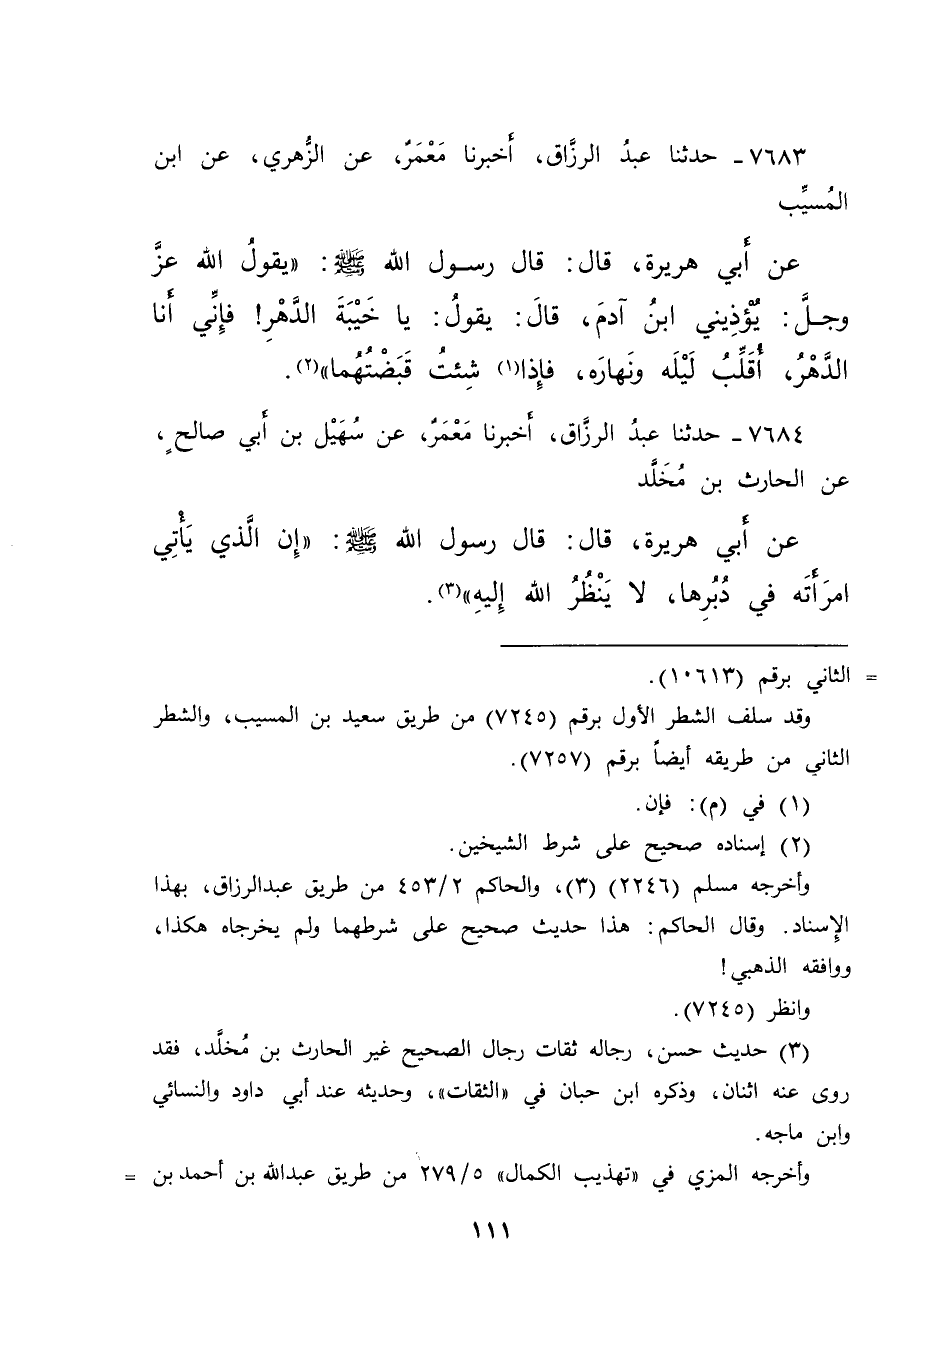 ٧٦٨٣ـ حدثنا عبدُ الرزَّاق، أَخبرنا مَعْمَرٌ، عن الزُّهري، عن ابن
المُسيِّب
عن أَبي هريرة، قال: قال رسول الله ﷺ: «يقولُ الله عزَّ
وجلَّ: يُؤْذِيني ابنُ آدمَ، قالَ: يقولُ: يا خَيْبَةَ الدَّهْرِ! فإِنِّي أَنا
الدَّهْرُ، أُقَلِّبُ لَيْلَه ونَهارَه، فإِذا(١) شِئتُ قَبَضْتُهُما»(٢).
٧٦٨٤ـ حدثنا عبدُ الرزَّاق، أَخبرنا مَعْمَرٌ، عن سُهَيْل بن أَبي صالحٍ،
عن الحارث بن مُخَلَّد
عن أَبي هريرة، قال: قال رسول الله ﷺ: «إِن الَّذي يَأْتِي
امرَأَتَه في دُبُرِها، لا يَنْظُرُ الله إِليهِ»(٣).
= الثاني برقم (١٠٦١٣).
وقد سلف الشطر الأول برقم (٧٢٤٥) من طريق سعيد بن المسيب، والشطر
الثاني من طريقه أيضاً برقم (٧٢٥٧).
(١) في (م): فإن.
(٢) إسناده صحيح على شرط الشيخين.
وأخرجه مسلم (٢٢٤٦) (٣)، والحاكم ٤٥٣/٢ من طريق عبدالرزاق، بهذا
الإسناد. وقال الحاكم: هذا حديث صحيح على شرطهما ولم يخرجاه هكذا،
ووافقه الذهبي!
وانظر (٧٢٤٥).
(٣) حديث حسن، رجاله ثقات رجال الصحيح غير الحارث بن مُخلَّد، فقد
روى عنه اثنان، وذكره ابن حبان في «الثقات»، وحديثه عند أبي داود والنسائي
وابن ماجه.
وأخرجه المزي في «تهذيب الكمال» ٢٧٩/٥ من طريق عبدالله بن أحمد بن =
١١١